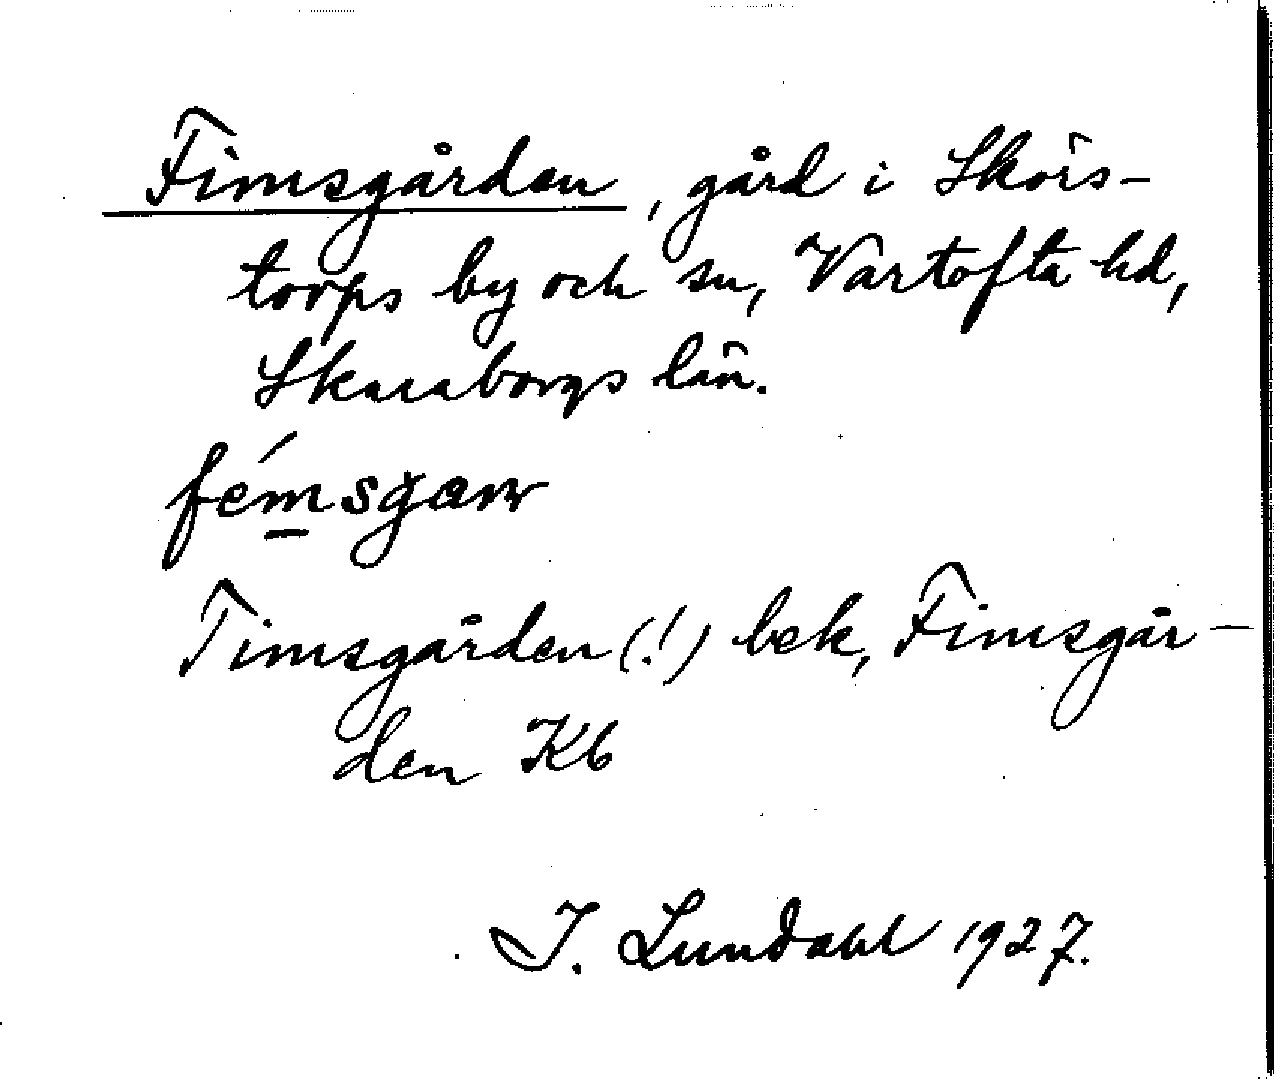 Fimsgården, gård i Skörs-
torps by och sn, Vartofta hd,
Skaraborgs län.
fémsgarr
Timsgården (!) bek, Fimsgår-
den Kb
I. Lundahl 1927.